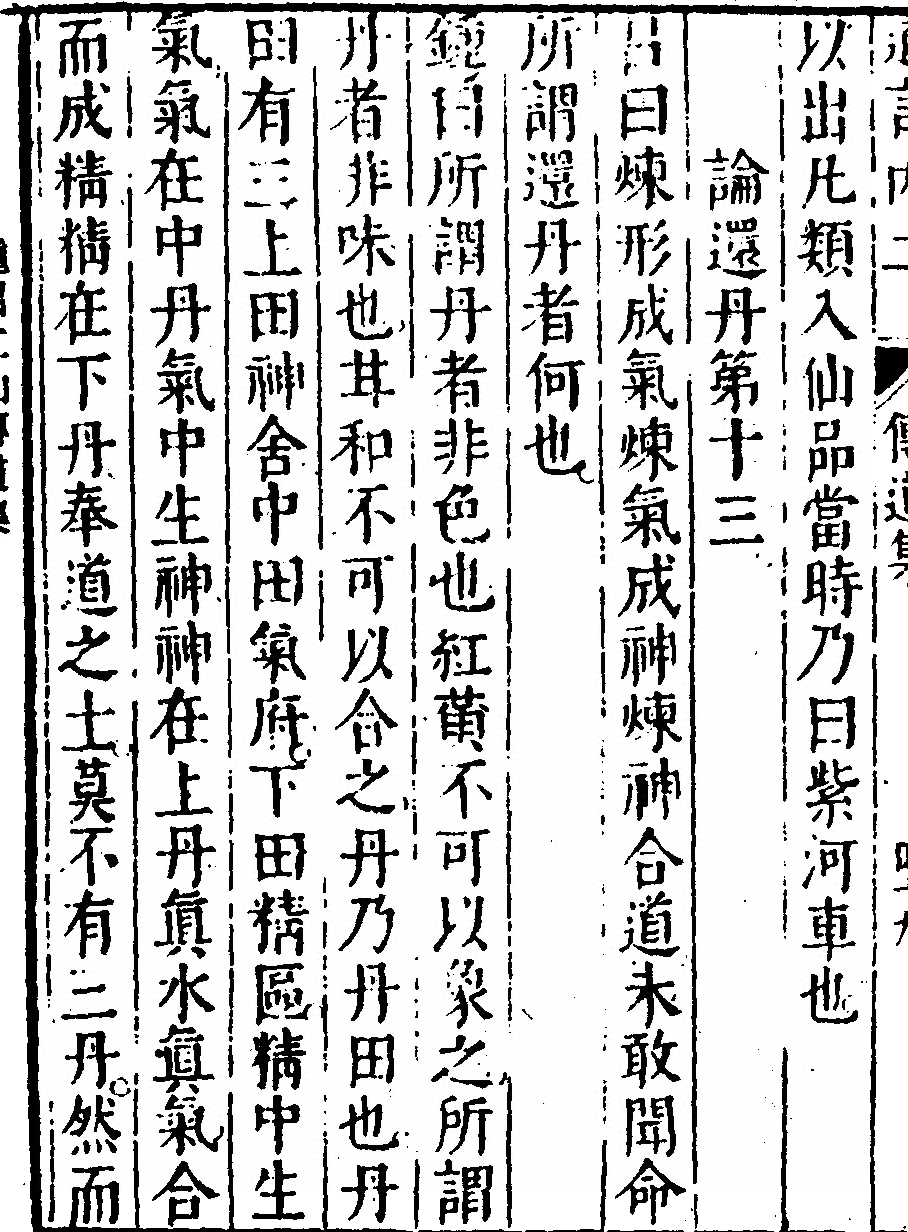 以出凡類入仙品當時乃曰紫河車也
論還丹第十三
呂曰煉形成氣煉氣成神煉神合道未敢聞命
所謂還丹者何也
鍾曰所謂丹者非色也紅黃不可以象之所謂
丹者非味也甘和不可以合之丹乃丹田也丹
田有三上田神舍中田氣府下田精區精中生
氣氣在中丹氣中生神神在上丹眞水眞氣合
而成精精在下丹奉道之士莫不有三丹然而